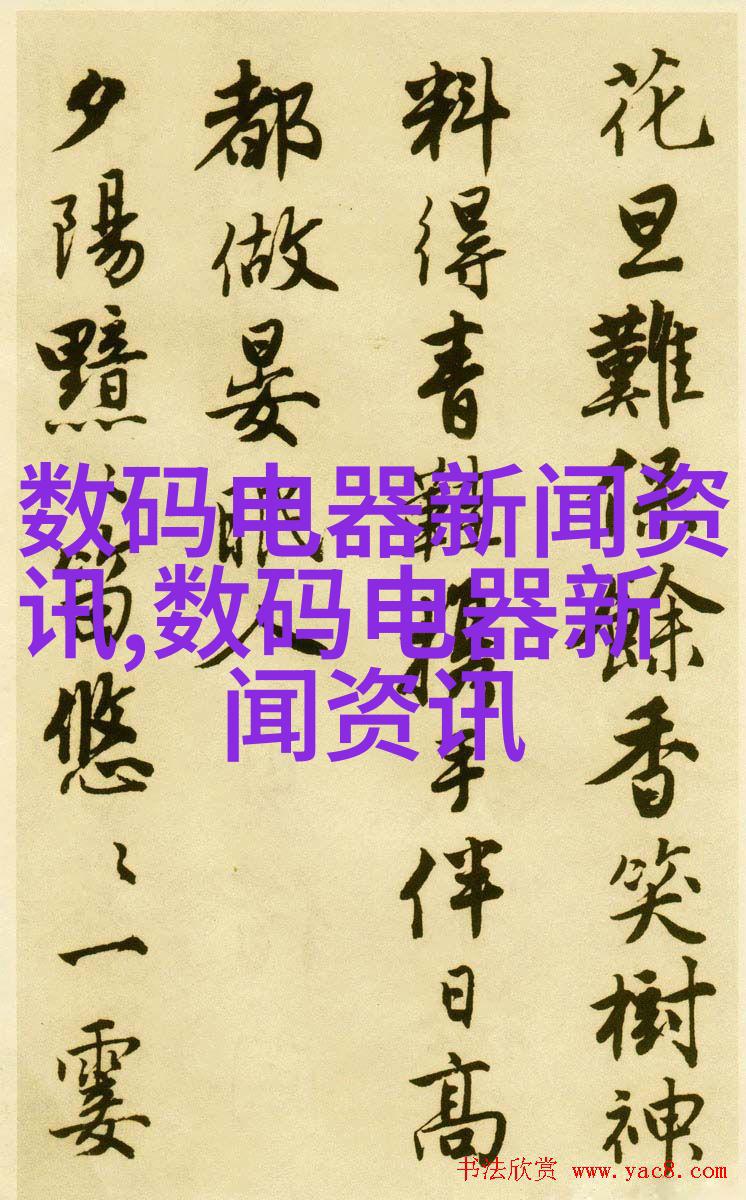 花旦難餘香笑樹神
料得青手伴日高
都做晏眠人
夕陽黯笛悠〻一霎
数码电器新闻资
讯,数码电器新
闻资讯
书法欣赏 www.yac8.com